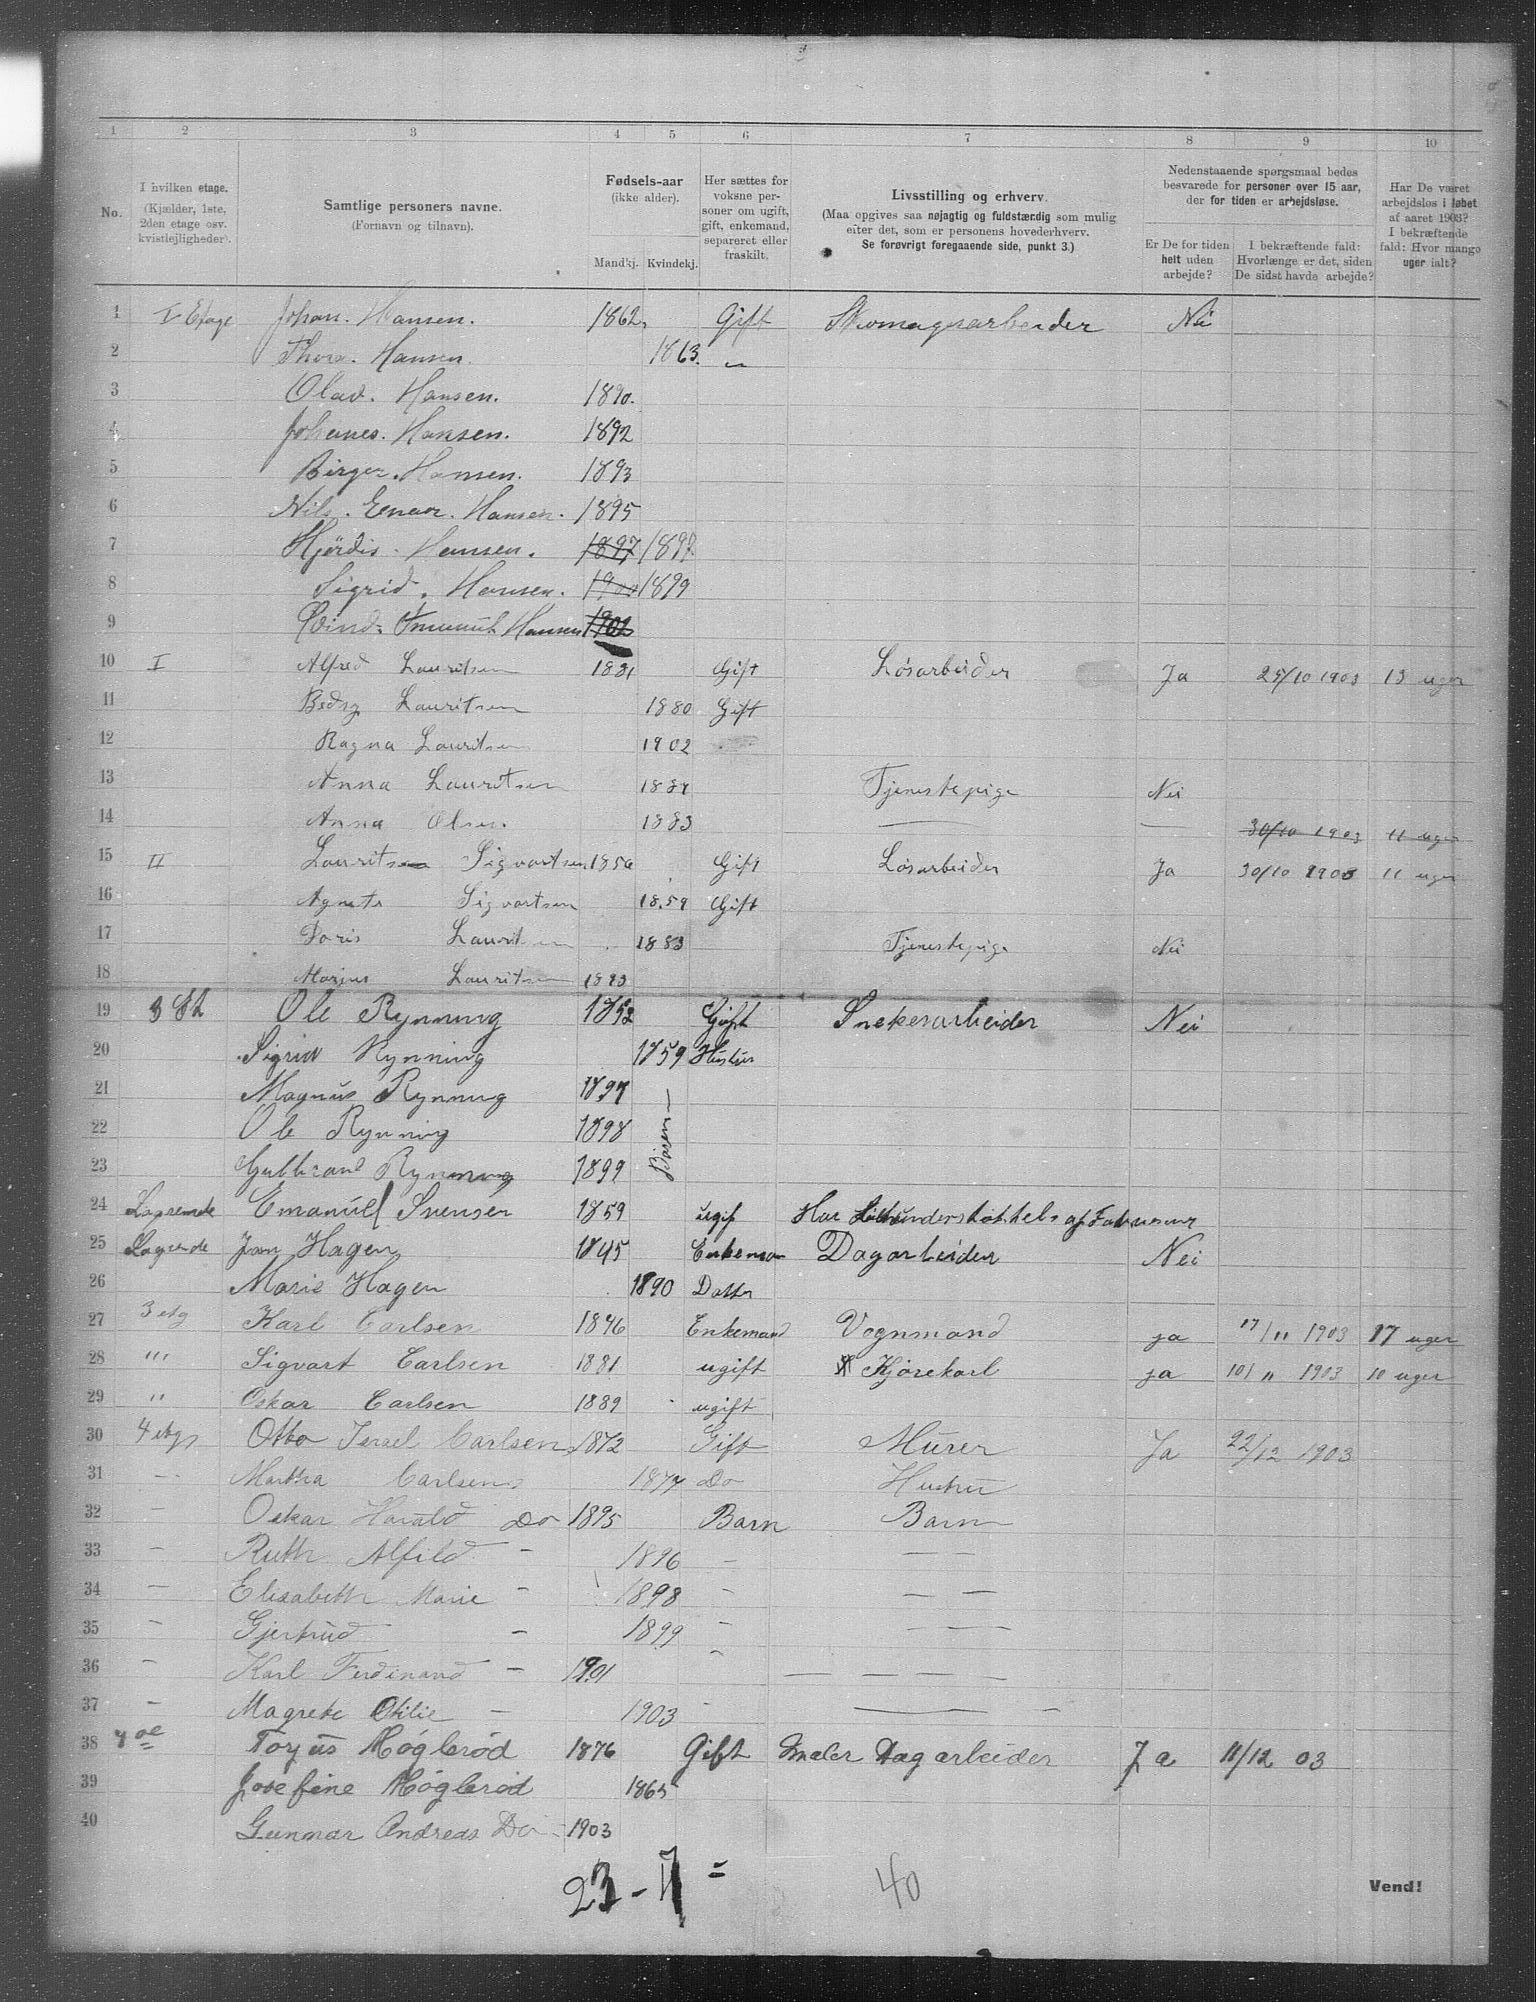 1 2 3 4 5 6 7 8 9 10
No.
I hvilken etage. (Kjælder, 1ste, 2den etage osv. kvistlejligheder).
Samtlige personers navne. (Fornavn og tilnavn).
Fødsels-aar (ikke alder). Mandkj. Kvindekj.
Her sættes for voksne personer om ugift, gift, enkemand, separeret eller fraskilt.
Livsstilling og erhverv. (Maa opgives saa nøjagtig og fuldstændig som mulig efter det, som er personens hovederhverv. Se forøvrigt foregaaende side, punkt 3.)
Nedenstaaende spørgsmaal bedes besvarede for personer over 15 aar, der for tiden er arbejdsløse.
Er De for tiden helt uden arbejde?
I bekræftende fald: Hvorlænge er det, siden De sidst havde arbejde?
Har De været arbejdsløs i løbet af aaret 1903? I bekræftende fald: Hvor mange uger ialt?
1 I Etage Johan. Hansen. 1862, Gift Skomagerarbeider Nei
2 Thora. Hansen. 1863. "
3 Olav. Hansen. 1890.
4 Johanes. Hansen. 1892
5 Birger. Hansen. 1893
6 Nils. Einar. Hansen. 1895
7 Hjördis. Hansen. 1897 1897
8 Sigrid. Hansen. 1900 1899
9 Hansen 1902
10 I Alfred Lauritsen 1881 Gift Løsarbeider Ja 25/10 1903 13 uger
11 Bedsy Lauritsen 1880 Gift
12 Ragna Lauritsen 1902
13 Anna Lauritsen 1887 Tjenestepige Nei
14 Anna Olsen 1883 — — 30/10 1903 11 uger
15 II Lauritsen Sigvartsen 1856 Gift Løsarbeider Ja 30/10 1903 11 uger
16 Agnete Sigvartsen 1859 Gift
17 Doris Lauritsen 1883 Tjenestepige Nei
18 Marius Lauritsen 1893
19 3 Ole Rynning 1852 Gift Snekerarbeider Nei
20 Sigrid Rynning 1859 Hustru
21 Magnus Rynning 1897
22 Ole Rynning 1898
23 Gulbrand Rynning 1899
Børen —
24 Logerende Emanuel Svensen 1859 ugif Har understøttels af
25 Logrende Jan Hagen 1845 Enkeman Dagarbeider Nei
26 Marie Hagen 1890 Datter
27 3 etg Karl Carlsen 1846 Enkemand Vognmand ja 17/11 1903 17 uger
28 ''' Sigvart Carlsen 1881 ugift Kjørekarl ja 10/11 1903 10 uger
29 " Oskar Carlsen 1889 ugift
30 4 etg Otto Israel Carlsen 1872 Gift Murer Ja 22/12 1903
31 — Martha Carlsen 1877 Do Hustru
32 — Oskar Harald Do 1895 Barn Barn
33 — Ruth Alfild — 1896 — — —
34 — Elisabeth Marie — 1898 — — —
35 — Gjertrud — 1899 — — —
36 — Karl Ferdinand — 1901 — — — —
37 — Magrete Otilie — 1903 — — —
38 4 de Torjus Høgbrød 1876 Gift Maler Dagarbeider Ja 11/12 03
39 Josefine Høgbrød 1865
40 Gunnar Andreas Do — 1903
23 - 17 = 40
Vend!